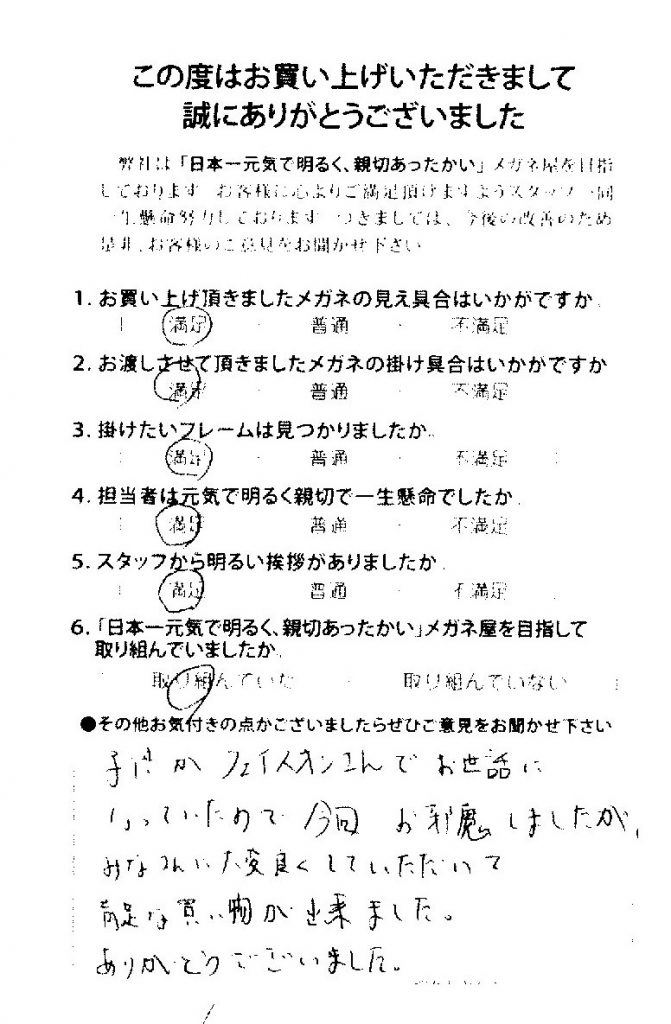 この度はお買い上げいただきまして
誠にありがとうございました
弊社は「日本一元気で明るく、親切あったかい」メガネ屋を目指
しております お客様に心よりご満足頂けますようスタッフ一同
一生懸命努力しております つきましては、今後の改善のため
是非、お客様のご意見をお聞かせ下さい
1. お買い上げ頂きましたメガネの見え具合はいかがですか
満足 ・ 普通 ・ 不満足
2. お渡しさせて頂きましたメガネの掛け具合はいかがですか
満足 ・ 普通 ・ 不満足
3. 掛けたいフレームは見つかりましたか
満足 ・ 普通 ・ 不満足
4. 担当者は元気で明るく親切で一生懸命でしたか
満足 ・ 普通 ・ 不満足
5. スタッフから明るい挨拶がありましたか
満足 ・ 普通 ・ 不満足
6. 「日本一元気で明るく、親切あったかい」メガネ屋を目指して
取り組んでいましたか
取り組んでいた 取り組んでいない
●その他お気付きの点がございましたらぜひご意見をお聞かせ下さい
子供が フェイスオンさんで お世話に
なっていたので 今回 お邪魔しましたが、
みなさんに大変良くしていただいて
満足な買い物が出来ました。
ありがとうございました。